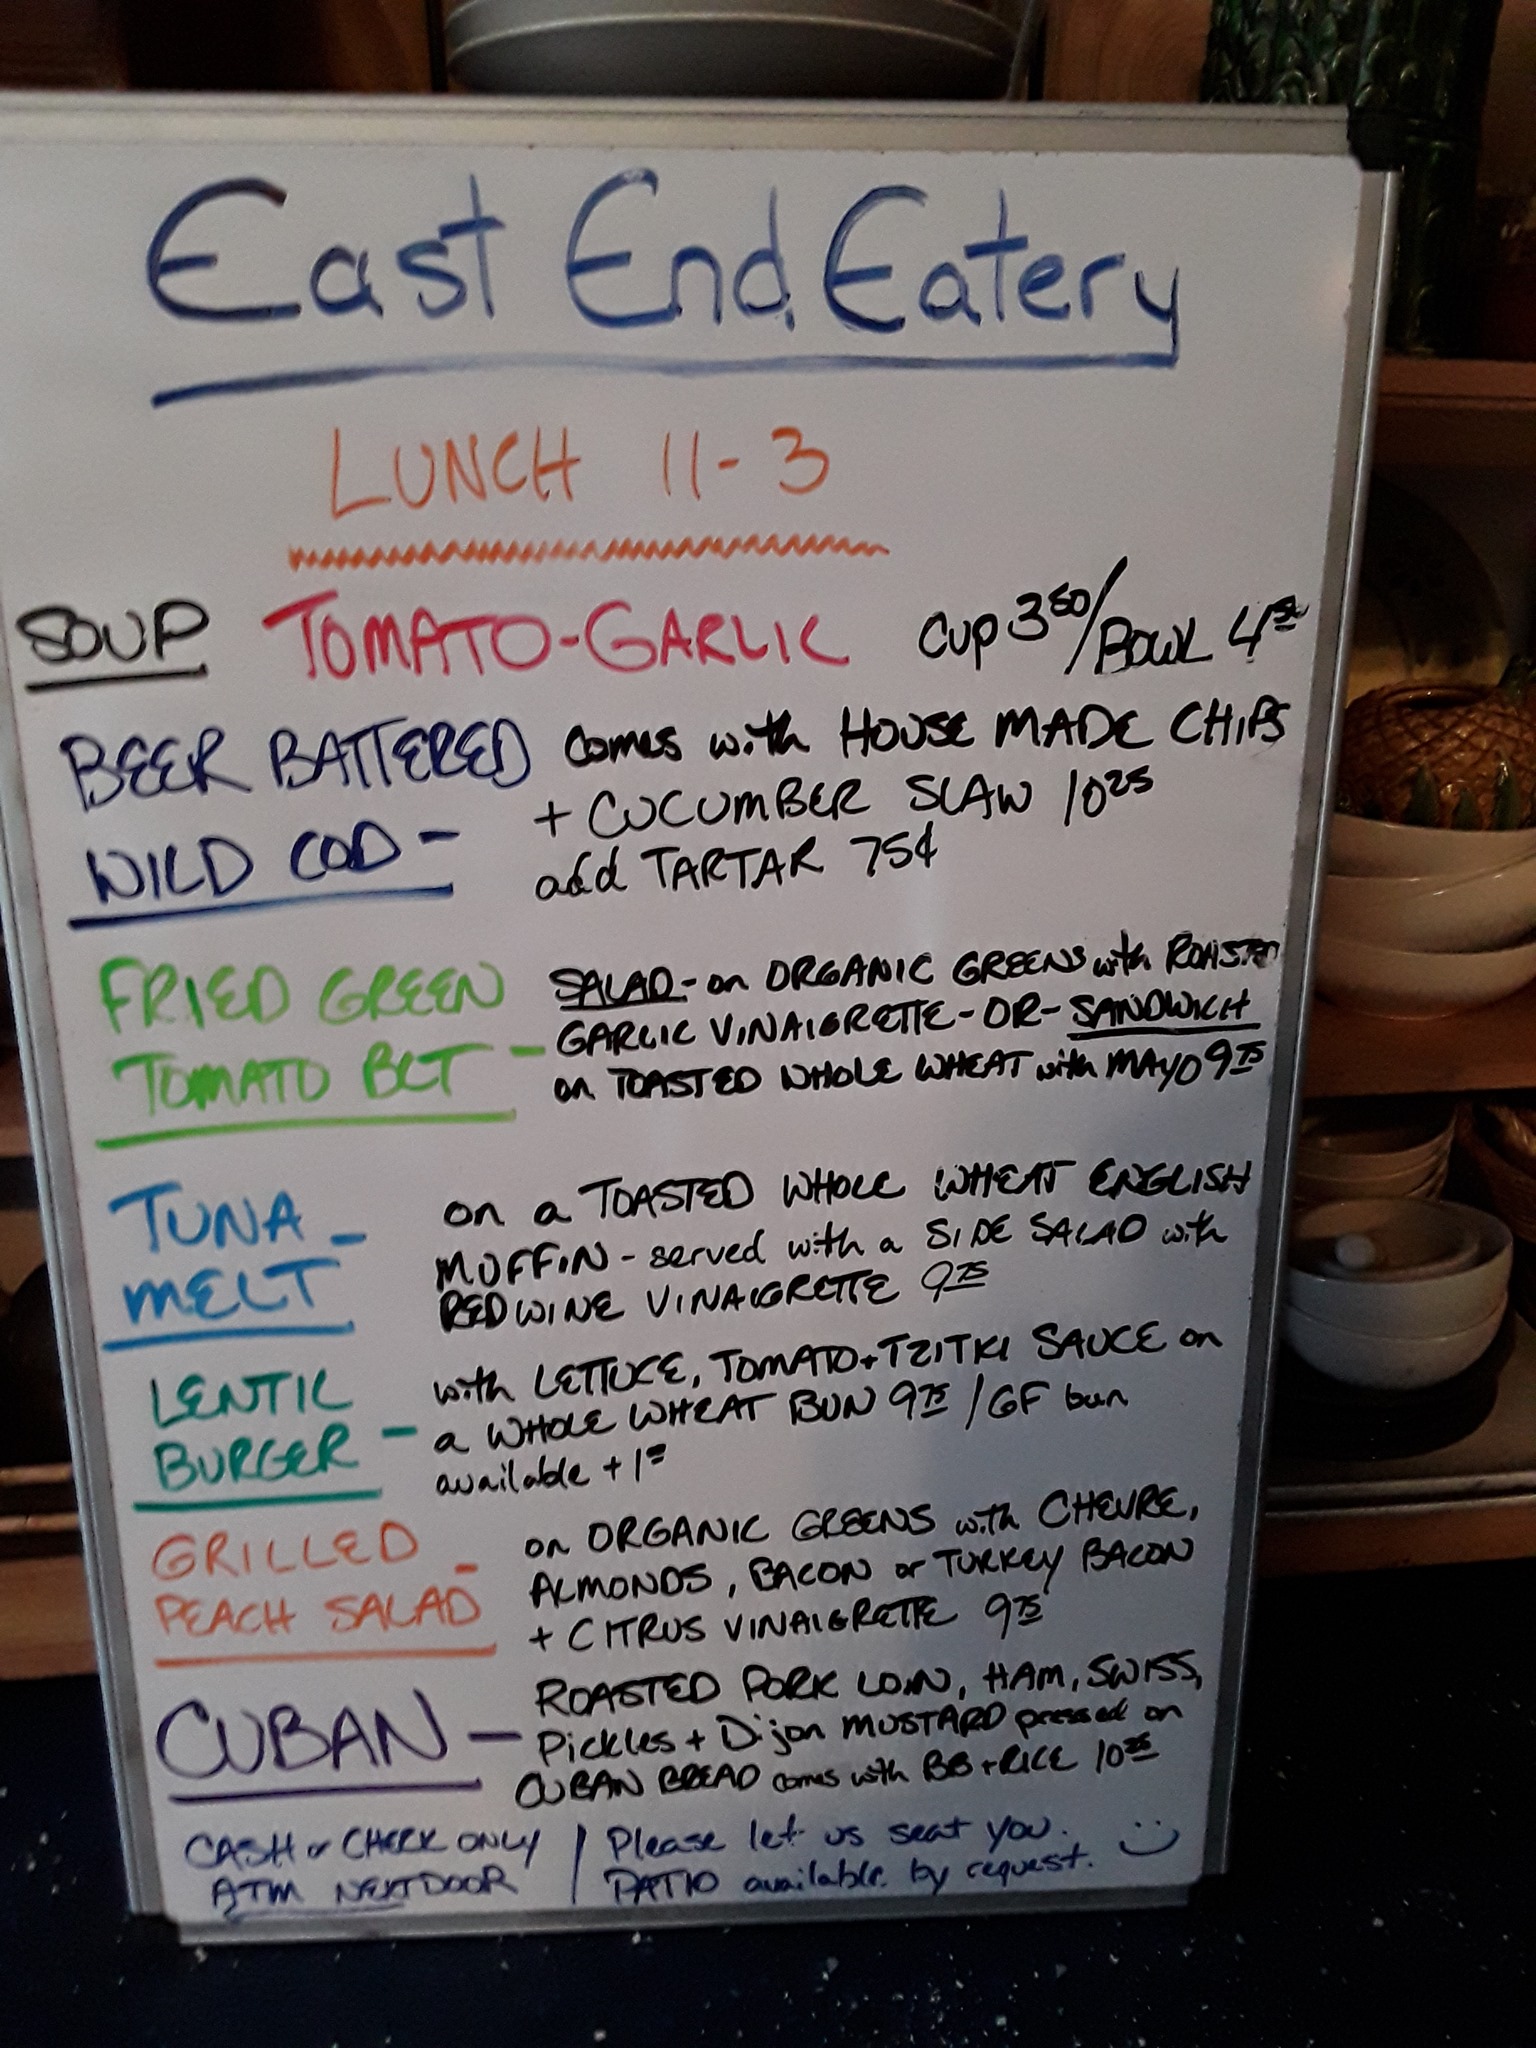 East End Eatery
LUNCH 11-3
SOUP TOMATO-GARLIC CUP 3.50/BOWL
BEER BATTERED comes with HOUSE MADE CHIPS
WILD COD - + CUCUMBER SLAW 10.25
add TARTAR 75¢
FRIED GREEN SALAD - on ORGANIC GREENS with ROASTED
TOMATO BLT - GARLIC VINAIGRETTE - OR - SANDWICH
on TOASTED WHOLE WHEAT with MAYO 9.75
TUNA on a TOASTED WHOLE WHEAT ENGLISH
MELT - MUFFIN - served with a SIDE SALAD with
RED WINE VINAIGRETTE 9.75
LENTIL with LETTUCE, TOMATO + TZITKI SAUCE on
BURGER - a WHOLE WHEAT BUN 9.75 / GF bun
available +1
GRILLED on ORGANIC GREENS with CHEVRE,
PEACH SALAD - ALMONDS, BACON or TURKEY BACON
+ CITRUS VINAIGRETTE 9.75
CUBAN - ROASTED PORK LOIN, HAM, SWISS,
Pickles + Dijon MUSTARD pressed on
CUBAN BREAD comes with BB + RICE 10.25
CASH or CHECK ONLY
ATM NEXT DOOR
Please let us seat you.
PATIO available by request.